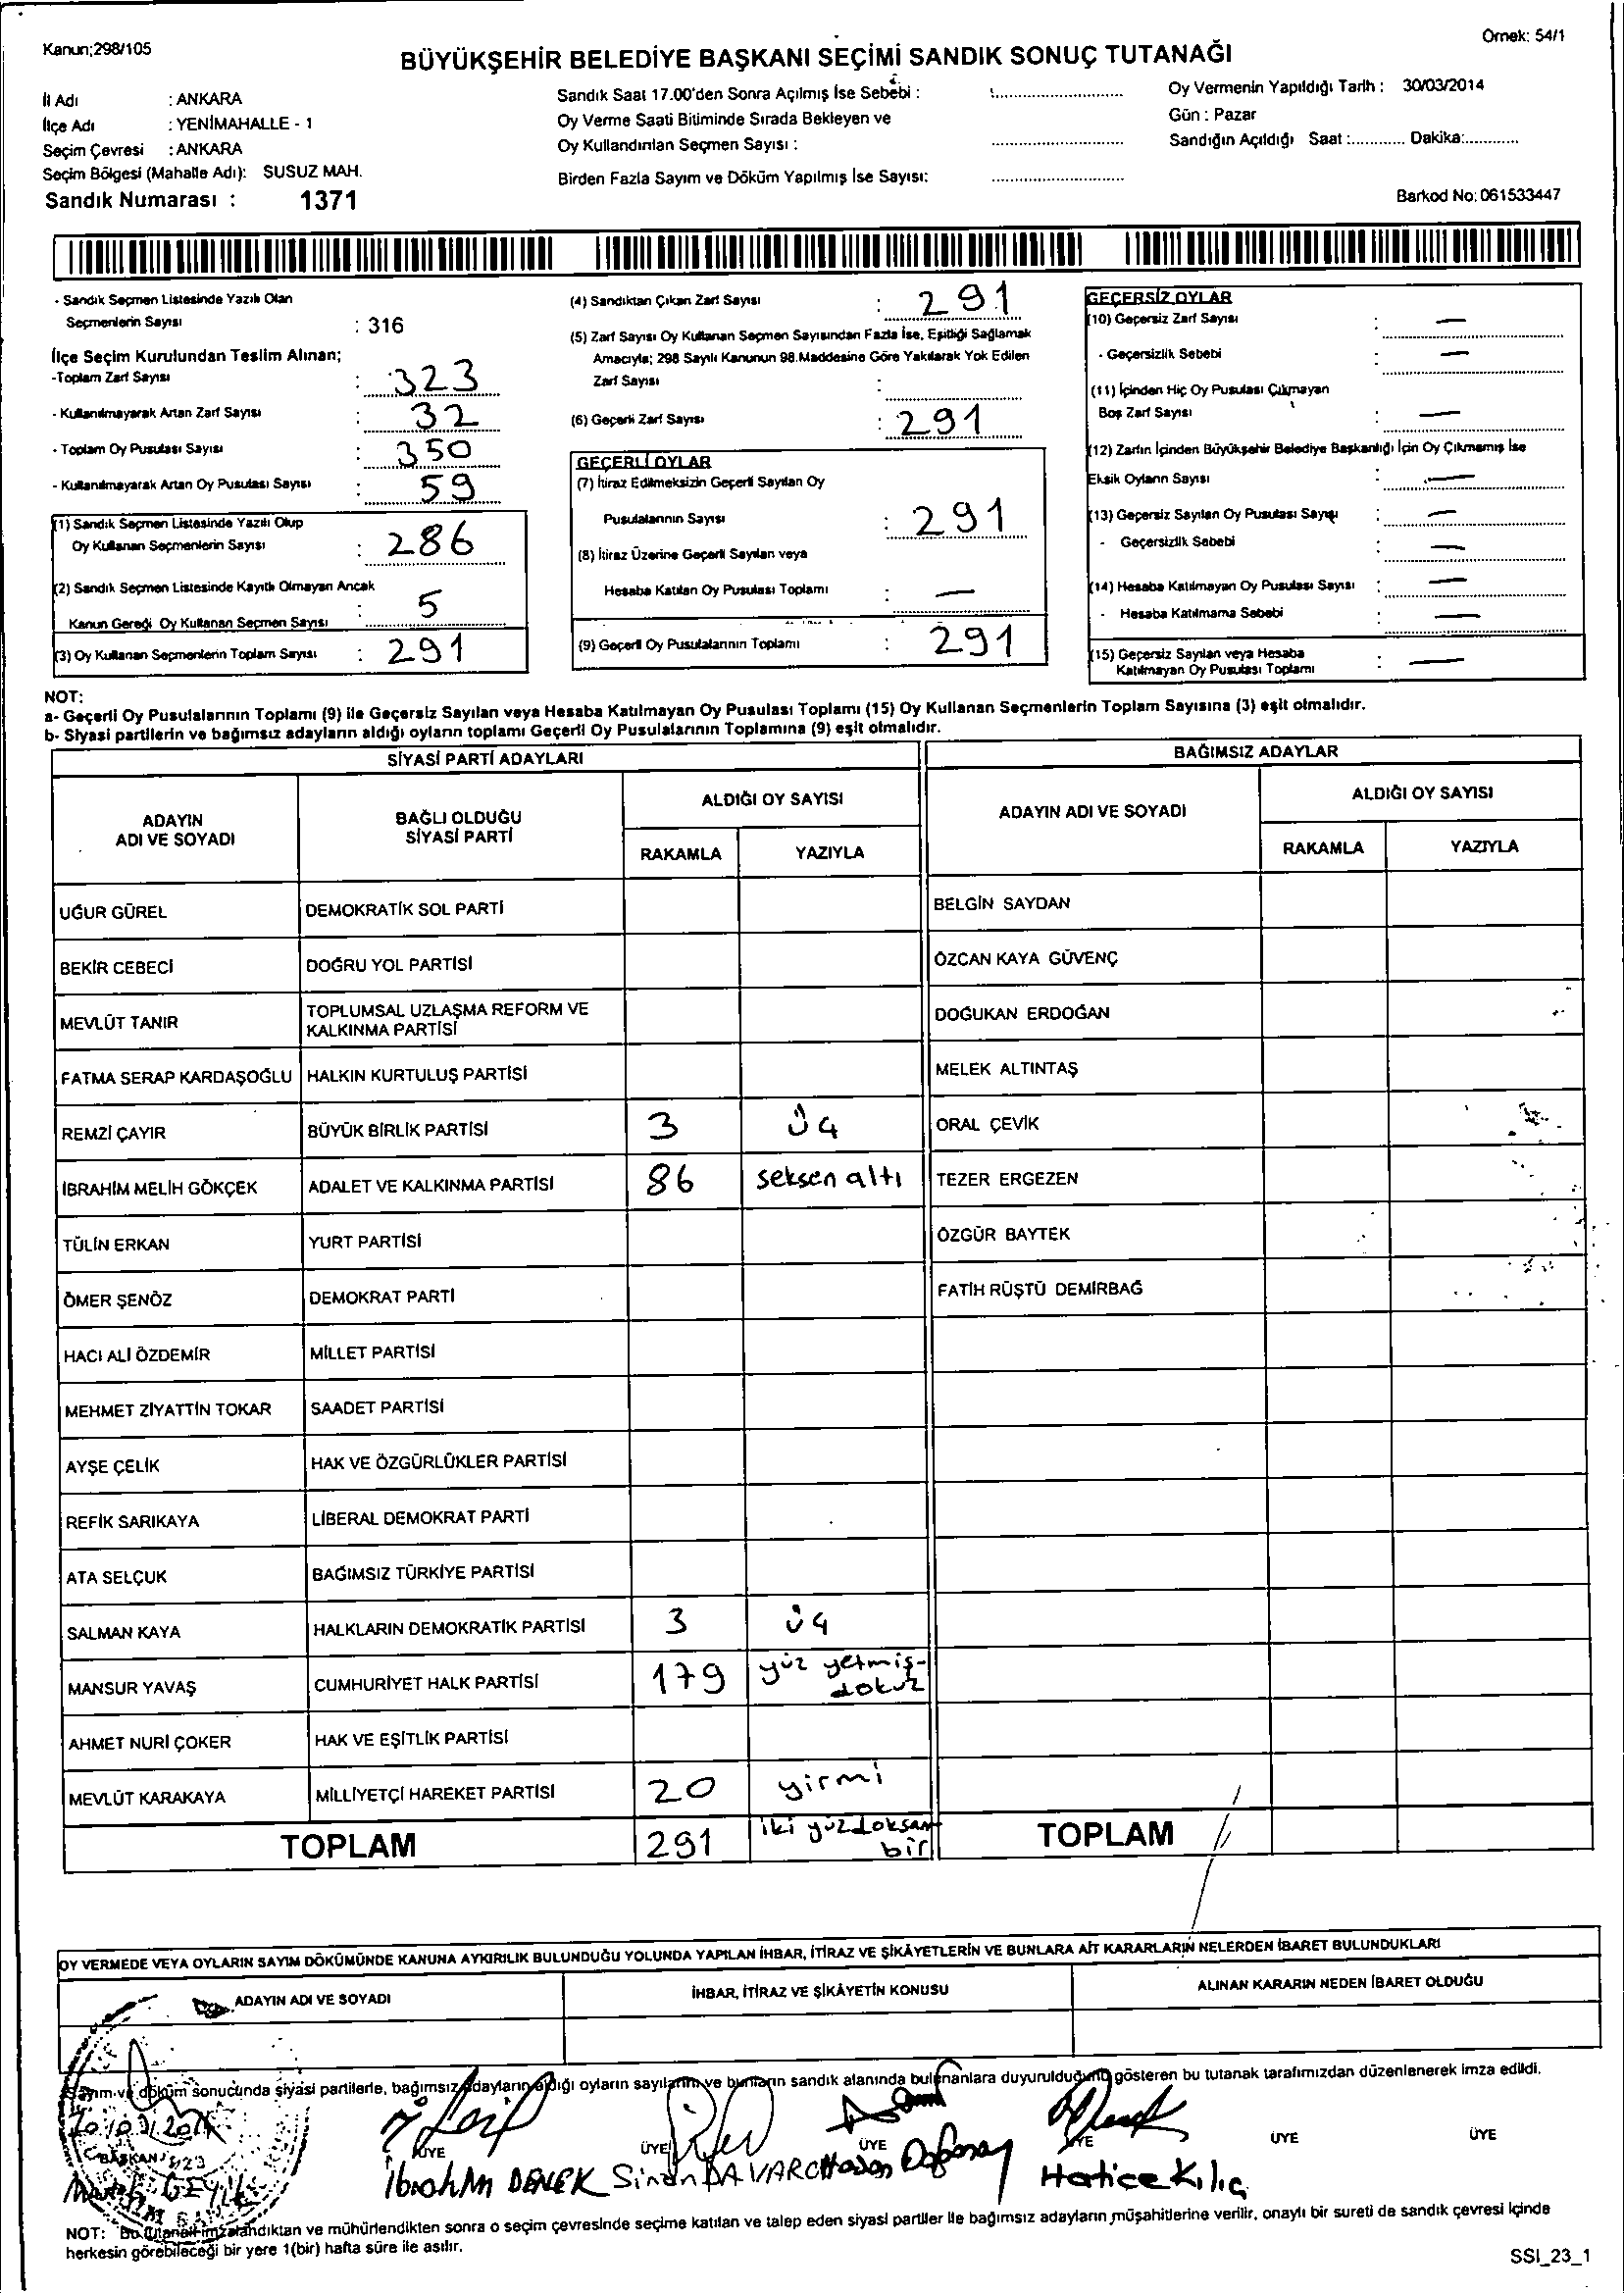 Kanun;298/105
Örnek: 54/1
BÜYÜKŞEHİR BELEDİYE BAŞKANI SEÇİMİ SANDIK SONUÇ TUTANAĞI
İl Adı : ANKARA
İlçe Adı : YENİMAHALLE - 1
Seçim Çevresi : ANKARA
Seçim Bölgesi (Mahalle Adı): SUSUZ MAH.
Sandık Numarası : 1371
Sandık Saat 17.00'den Sonra Açılmış İse Sebebi :
Oy Verme Saati Bitiminde Sırada Bekleyen ve
Oy Kullandırılan Seçmen Sayısı :
Birden Fazla Sayım ve Döküm Yapılmış İse Sayısı:
Oy Vermenin Yapıldığı Tarih : 30/03/2014
Gün : Pazar
Sandığın Açıldığı Saat :............ Dakika:............
Barkod No: 061533447
- Sandık Seçmen Listesinde Yazılı Olan
Seçmenlerin Sayısı : 316
İlçe Seçim Kurulundan Teslim Alınan;
-Toplam Zarf Sayısı : 323
- Kullanılmayarak Artan Zarf Sayısı : 32
- Toplam Oy Pusulası Sayısı : 350
- Kullanılmayarak Artan Oy Pusulası Sayısı : 59
(1) Sandık Seçmen Listesinde Yazılı Olup
Oy Kullanan Seçmenlerin Sayısı : 286
(2) Sandık Seçmen Listesinde Kayıtlı Olmayan Ancak
Kanun Gereği Oy Kullanan Seçmen Sayısı : 5
(3) Oy Kullanan Seçmenlerin Toplam Sayısı : 291
(4) Sandıktan Çıkan Zarf Sayısı : 291
(5) Zarf Sayısı Oy Kullanan Seçmen Sayısından Fazla İse, Eşitliği Sağlamak
Amacıyla; 298 Sayılı Kanunun 98.Maddesine Göre Yakılarak Yok Edilen
Zarf Sayısı :
(6) Geçerli Zarf Sayısı : 291
GEÇERLİ OYLAR
(7) İtiraz Edilmeksizin Geçerli Sayılan Oy
Pusulalarının Sayısı : 291
(8) İtiraz Üzerine Geçerli Sayılan veya
Hesaba Katılan Oy Pusulası Toplamı : —
(9) Geçerli Oy Pusulalarının Toplamı : 291
GEÇERSİZ OYLAR
(10) Geçersiz Zarf Sayısı : —
- Geçersizlik Sebebi : —
(11) İçinden Hiç Oy Pusulası Çıkmayan
Boş Zarf Sayısı : —
(12) Zarfın İçinden Büyükşehir Belediye Başkanlığı İçin Oy Çıkmamış İse
Eksik Oyların Sayısı : —
(13) Geçersiz Sayılan Oy Pusulası Sayısı : —
- Geçersizlik Sebebi : —
(14) Hesaba Katılmayan Oy Pusulası Sayısı : —
- Hesaba Katılmama Sebebi : —
(15) Geçersiz Sayılan veya Hesaba
Katılmayan Oy Pusulası Toplamı : —
NOT:
a- Geçerli Oy Pusulalarının Toplamı (9) ile Geçersiz Sayılan veya Hesaba Katılmayan Oy Pusulası Toplamı (15) Oy Kullanan Seçmenlerin Toplam Sayısına (3) eşit olmalıdır.
b- Siyasi partilerin ve bağımsız adayların aldığı oyların toplamı Geçerli Oy Pusulalarının Toplamına (9) eşit olmalıdır.
SİYASİ PARTİ ADAYLARI
ADAYIN
ADI VE SOYADI
BAĞLI OLDUĞU
SİYASİ PARTİ
ALDIĞI OY SAYISI
RAKAMLA YAZIYLA
UĞUR GÜREL DEMOKRATİK SOL PARTİ
BEKİR CEBECİ DOĞRU YOL PARTİSİ
MEVLÜT TANIR TOPLUMSAL UZLAŞMA REFORM VE
KALKINMA PARTİSİ
FATMA SERAP KARDAŞOĞLU HALKIN KURTULUŞ PARTİSİ
REMZİ ÇAYIR BÜYÜK BİRLİK PARTİSİ 3 üç
İBRAHİM MELİH GÖKÇEK ADALET VE KALKINMA PARTİSİ 86 seksen altı
TÜLİN ERKAN YURT PARTİSİ
ÖMER ŞENÖZ DEMOKRAT PARTİ
HACI ALİ ÖZDEMİR MİLLET PARTİSİ
MEHMET ZİYATTİN TOKAR SAADET PARTİSİ
AYŞE ÇELİK HAK VE ÖZGÜRLÜKLER PARTİSİ
REFİK SARIKAYA LİBERAL DEMOKRAT PARTİ
ATA SELÇUK BAĞIMSIZ TÜRKİYE PARTİSİ
SALMAN KAYA HALKLARIN DEMOKRATİK PARTİSİ 3 üç
MANSUR YAVAŞ CUMHURİYET HALK PARTİSİ 179 yüz yetmiş-
dokuz
AHMET NURİ ÇOKER HAK VE EŞİTLİK PARTİSİ
MEVLÜT KARAKAYA MİLLİYETÇİ HAREKET PARTİSİ 20 yirmi
TOPLAM 291 iki yüz doksan
bir
BAĞIMSIZ ADAYLAR
ADAYIN ADI VE SOYADI
ALDIĞI OY SAYISI
RAKAMLA YAZIYLA
BELGİN SAYDAN
ÖZCAN KAYA GÜVENÇ
DOĞUKAN ERDOĞAN
MELEK ALTINTAŞ
ORAL ÇEVİK
TEZER ERGEZEN
ÖZGÜR BAYTEK
FATİH RÜŞTÜ DEMİRBAĞ
TOPLAM
OY VERMEDE VEYA OYLARIN SAYIM DÖKÜMÜNDE KANUNA AYKIRILIK BULUNDUĞU YOLUNDA YAPILAN İHBAR, İTİRAZ VE ŞİKÂYETLERİN VE BUNLARA AİT KARARLARIN NELERDEN İBARET BULUNDUKLARI
ADAYIN ADI VE SOYADI İHBAR, İTİRAZ VE ŞİKÂYETİN KONUSU ALINAN KARARIN NEDEN İBARET OLDUĞU
Sayım ve döküm sonucunda siyasi partilerle, bağımsız adayların aldığı oyların sayılarını ve bunların sandık alanında bulunanlara duyurulduğunu gösteren bu tutanak tarafımızdan düzenlenerek imza edildi.
BAŞKAN ÜYE ÜYE ÜYE ÜYE ÜYE ÜYE
İbrahim DENEK Sinan Hasan Hatice Kılıç
NOT: Bu tutanak imzalandıktan ve mühürlendikten sonra o seçim çevresinde seçime katılan ve talep eden siyasi partiler ile bağımsız adayların müşahitlerine verilir, onaylı bir sureti de sandık çevresi içinde
herkesin görebileceği bir yere 1(bir) hafta süre ile asılır.
SSI_23_1